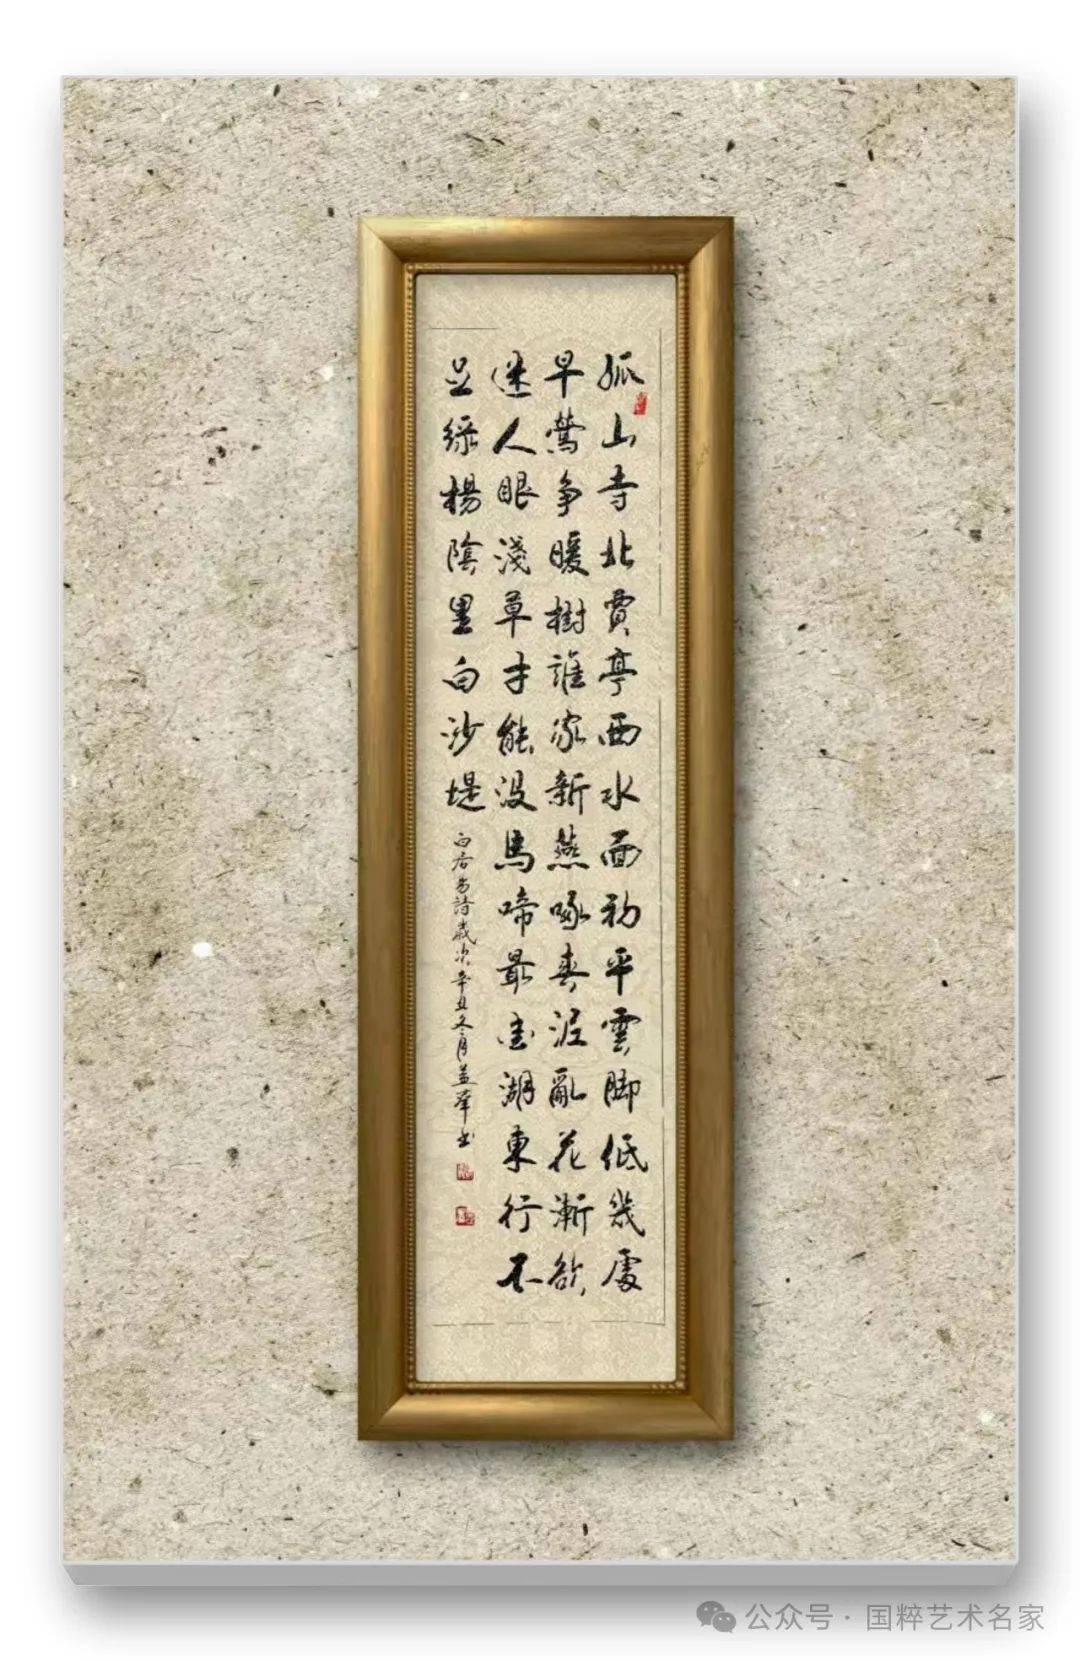 孤山寺北賈亭西水面初平雲脚低幾處
早鶯争暖樹誰家新燕啄春泥亂花漸欲
迷人眼淺草才能没馬啼最愛湖東行不
足綠楊陰里白沙堤
白居易詩歲次辛丑冬月益峯书
公众号 · 国粹艺术名家